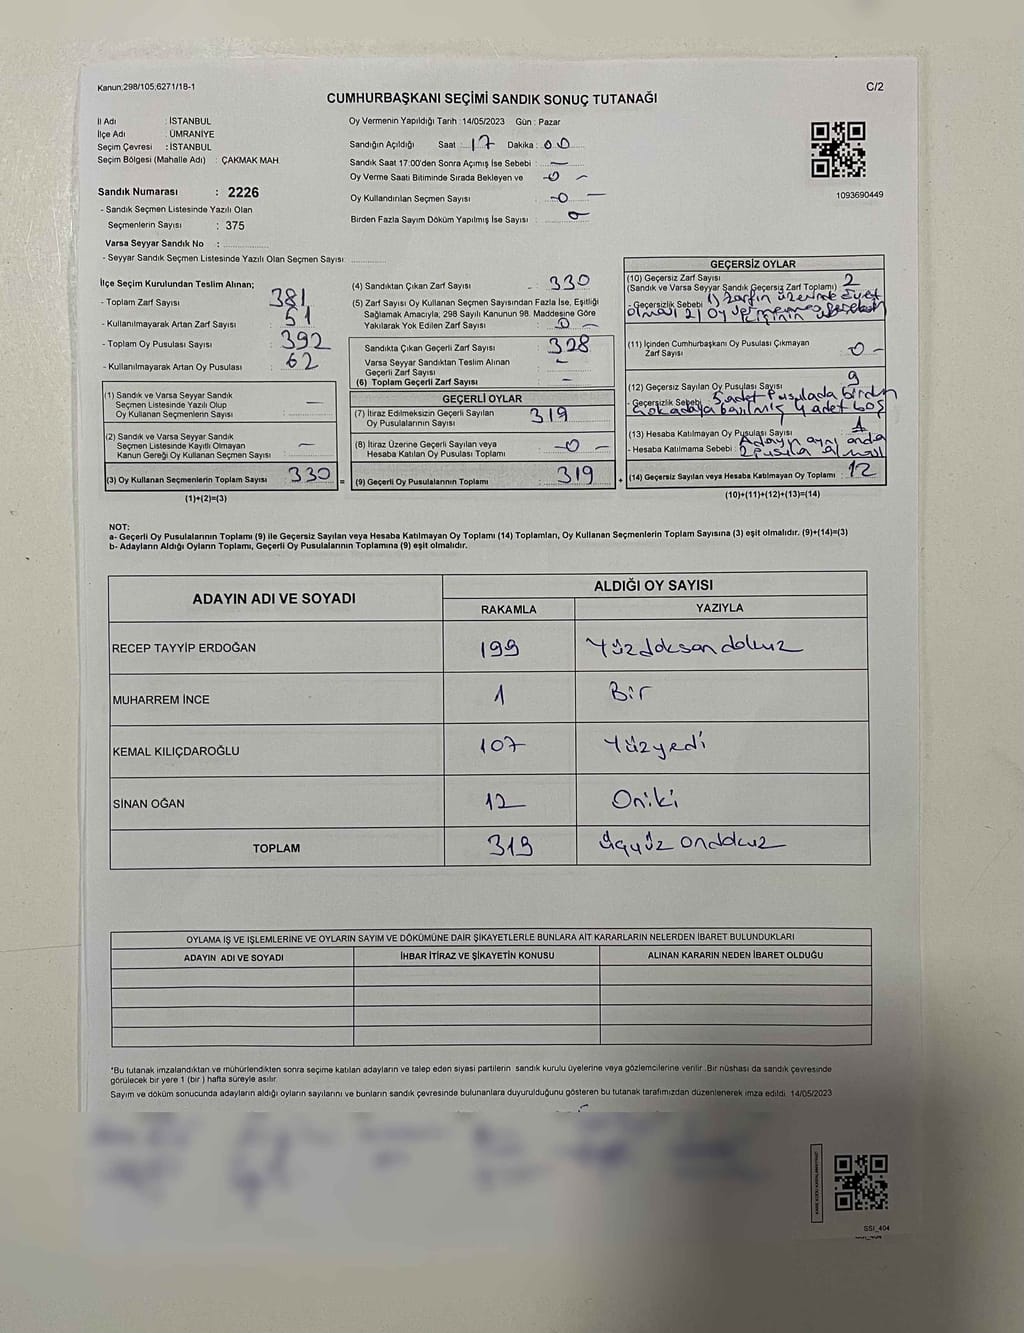 Kanun;298/105,6271/18-1
C/2
CUMHURBAŞKANI SEÇİMİ SANDIK SONUÇ TUTANAĞI
İl Adı : İSTANBUL
İlçe Adı : ÜMRANİYE
Seçim Çevresi : İSTANBUL
Seçim Bölgesi (Mahalle Adı) : ÇAKMAK MAH
Sandık Numarası : 2226
- Sandık Seçmen Listesinde Yazılı Olan
Seçmenlerin Sayısı : 375
Varsa Seyyar Sandık No :
- Seyyar Sandık Seçmen Listesinde Yazılı Olan Seçmen Sayısı:
Oy Vermenin Yapıldığı Tarih :14/05/2023 Gün : Pazar
Sandığın Açıldığı Saat : 17 Dakika : 00
Sandık Saat 17:00'den Sonra Açımış İse Sebebi : —
Oy Verme Saati Bitiminde Sırada Bekleyen ve -0 -
Oy Kullandırılan Seçmen Sayısı -0 -
Birden Fazla Sayım Döküm Yapılmış İse Sayısı : 0
1093690449
İlçe Seçim Kurulundan Teslim Alınan;
- Toplam Zarf Sayısı : 381
- Kullanılmayarak Artan Zarf Sayısı : 51
- Toplam Oy Pusulası Sayısı : 392
- Kullanılmayarak Artan Oy Pusulası : 62
(1) Sandık ve Varsa Seyyar Sandık
Seçmen Listesinde Yazılı Olup
Oy Kullanan Seçmenlerin Sayısı : —
(2) Sandık ve Varsa Seyyar Sandık
Seçmen Listesinde Kayıtlı Olmayan
Kanun Gereği Oy Kullanan Seçmen Sayısı : —
(3) Oy Kullanan Seçmenlerin Toplam Sayısı : 330 =
(1)+(2)=(3)
(4) Sandıktan Çıkan Zarf Sayısı - : 330
(5) Zarf Sayısı Oy Kullanan Seçmen Sayısından Fazla İse, Eşitliği
Sağlamak Amacıyla, 298 Sayılı Kanunun 98. Maddesine Göre
Yakılarak Yok Edilen Zarf Sayısı : 0 -
Sandıkta Çıkan Geçerli Zarf Sayısı : 328
Varsa Seyyar Sandıktan Teslim Alınan
Geçerli Zarf Sayısı : -
(6) Toplam Geçerli Zarf Sayısı : -
GEÇERLİ OYLAR
(7) İtiraz Edilmeksizin Geçerli Sayılan
Oy Pusulalarının Sayısı : 319
(8) İtiraz Üzerine Geçerli Sayılan veya
Hesaba Katılan Oy Pusulası Toplamı : -0 -
(9) Geçerli Oy Pusulalarının Toplamı : 319 +
GEÇERSİZ OYLAR
(10) Geçersiz Zarf Sayısı
(Sandık ve Varsa Seyyar Sandık Geçersiz Zarf Toplamı) : 2
- Geçersizlik Sebebi : 1) Zarfın üzerinde Evet
olması 2) Oy
(11) İçinden Cumhurbaşkanı Oy Pusulası Çıkmayan
Zarf Sayısı : -0 -
(12) Geçersiz Sayılan Oy Pusulası Sayısı : 9
- Geçersizlik Sebebi : 5 adet Pusulada birden
çok adaya basılmış 4 adet boş
(13) Hesaba Katılmayan Oy Pusulası Sayısı : 1
- Hesaba Katılmama Sebebi : Adayın aynı anda
2 Pusula alması
(14) Geçersiz Sayılan veya Hesaba Katılmayan Oy Toplamı : 12
(10)+(11)+(12)+(13)=(14)
NOT:
a- Geçerli Oy Pusulalarının Toplamı (9) ile Geçersiz Sayılan veya Hesaba Katılmayan Oy Toplamı (14) Toplamları, Oy Kullanan Seçmenlerin Toplam Sayısına (3) eşit olmalıdır. (9)+(14)=(3)
b- Adayların Aldığı Oyların Toplamı, Geçerli Oy Pusulalarının Toplamına (9) eşit olmalıdır.
ADAYIN ADI VE SOYADI
ALDIĞI OY SAYISI
RAKAMLA YAZIYLA
RECEP TAYYİP ERDOĞAN 199 Yüzdoksandokuz
MUHARREM İNCE 1 Bir
KEMAL KILIÇDAROĞLU 107 Yüzyedi
SİNAN OĞAN 12 Oniki
TOPLAM 319 üçyüz ondokuz
OYLAMA İŞ VE İŞLEMLERİNE VE OYLARIN SAYIM VE DÖKÜMÜNE DAİR ŞİKAYETLERLE BUNLARA AİT KARARLARIN NELERDEN İBARET BULUNDUKLARI
ADAYIN ADI VE SOYADI İHBAR İTİRAZ VE ŞİKAYETİN KONUSU ALINAN KARARIN NEDEN İBARET OLDUĞU
*Bu tutanak imzalandıktan ve mühürlendikten sonra seçime katılan adayların ve talep eden siyasi partilerin sandık kurulu üyelerine veya gözlemcilerine verilir. Bir nüshası da sandık çevresinde
görülecek bir yere 1 (bir ) hafta süreyle asılır.
Sayım ve döküm sonucunda adayların aldığı oyların sayılarını ve bunların sandık çevresinde bulunanlara duyurulduğunu gösteren bu tutanak tarafımızdan düzenlenerek imza edildi. 14/05/2023
SSI_404